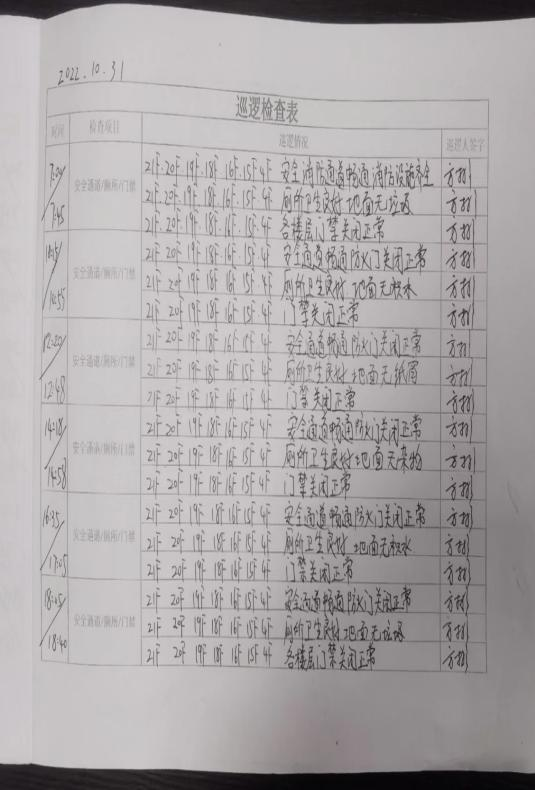 2022.10.31
巡逻检查表
时间 检查项目 巡逻情况 巡逻人签字
7:00 7:45 安全通道/厕所/门禁
21F.20F 19F.18F 16F.15F 4F 安全消防通道畅通 消防设施齐全
21F.20F 19F 18F 16F 15F 4F 厕所卫生良好 地面无垃圾
21F.20F 19F 18F 16F 15F 4F 各楼层门禁关闭正常
10:55 安全通道/厕所/门禁
21F 20F 19F 18F 16F 15F 4F 安全通道畅通 防火门关闭正常
21F 20F 19F 18F 16F 15F 4F 厕所卫生良好 地面无积水
21F 20F 19F 18F 16F 15F 4F 门禁关闭正常
12:20 12:48 安全通道/厕所/门禁
21F 20F 19F 18F 16F 15F 4F 安全通道畅通 防火门关闭正常
21F 20F 19F 18F 16F 15F 4F 厕所卫生良好 地面无纸屑
21F 20F 19F 18F 16F 15F 4F 门禁关闭正常
14:18 14:58 安全通道/厕所/门禁
21F 20F 19F 18F 16F 15F 4F 安全通道畅通 防火门关闭正常
21F 20F 19F 18F 16F 15F 4F 厕所卫生良好 地面无杂物
21F 20F 19F 18F 16F 15F 4F 门禁关闭正常
16:35 17:05 安全通道/厕所/门禁
21F 20F 19F 18F 16F 15F 4F 安全通道畅通 防火门关闭正常
21F 20F 19F 18F 16F 15F 4F 厕所卫生良好 地面无积水
21F 20F 19F 18F 16F 15F 4F 门禁关闭正常
18:05 18:40 安全通道/厕所/门禁
21F 20F 19F 18F 16F 15F 4F 安全通道畅通 防火门关闭正常
21F 20F 19F 18F 16F 15F 4F 厕所卫生良好 地面无垃圾
21F 20F 19F 18F 16F 15F 4F 各楼层门禁关闭正常